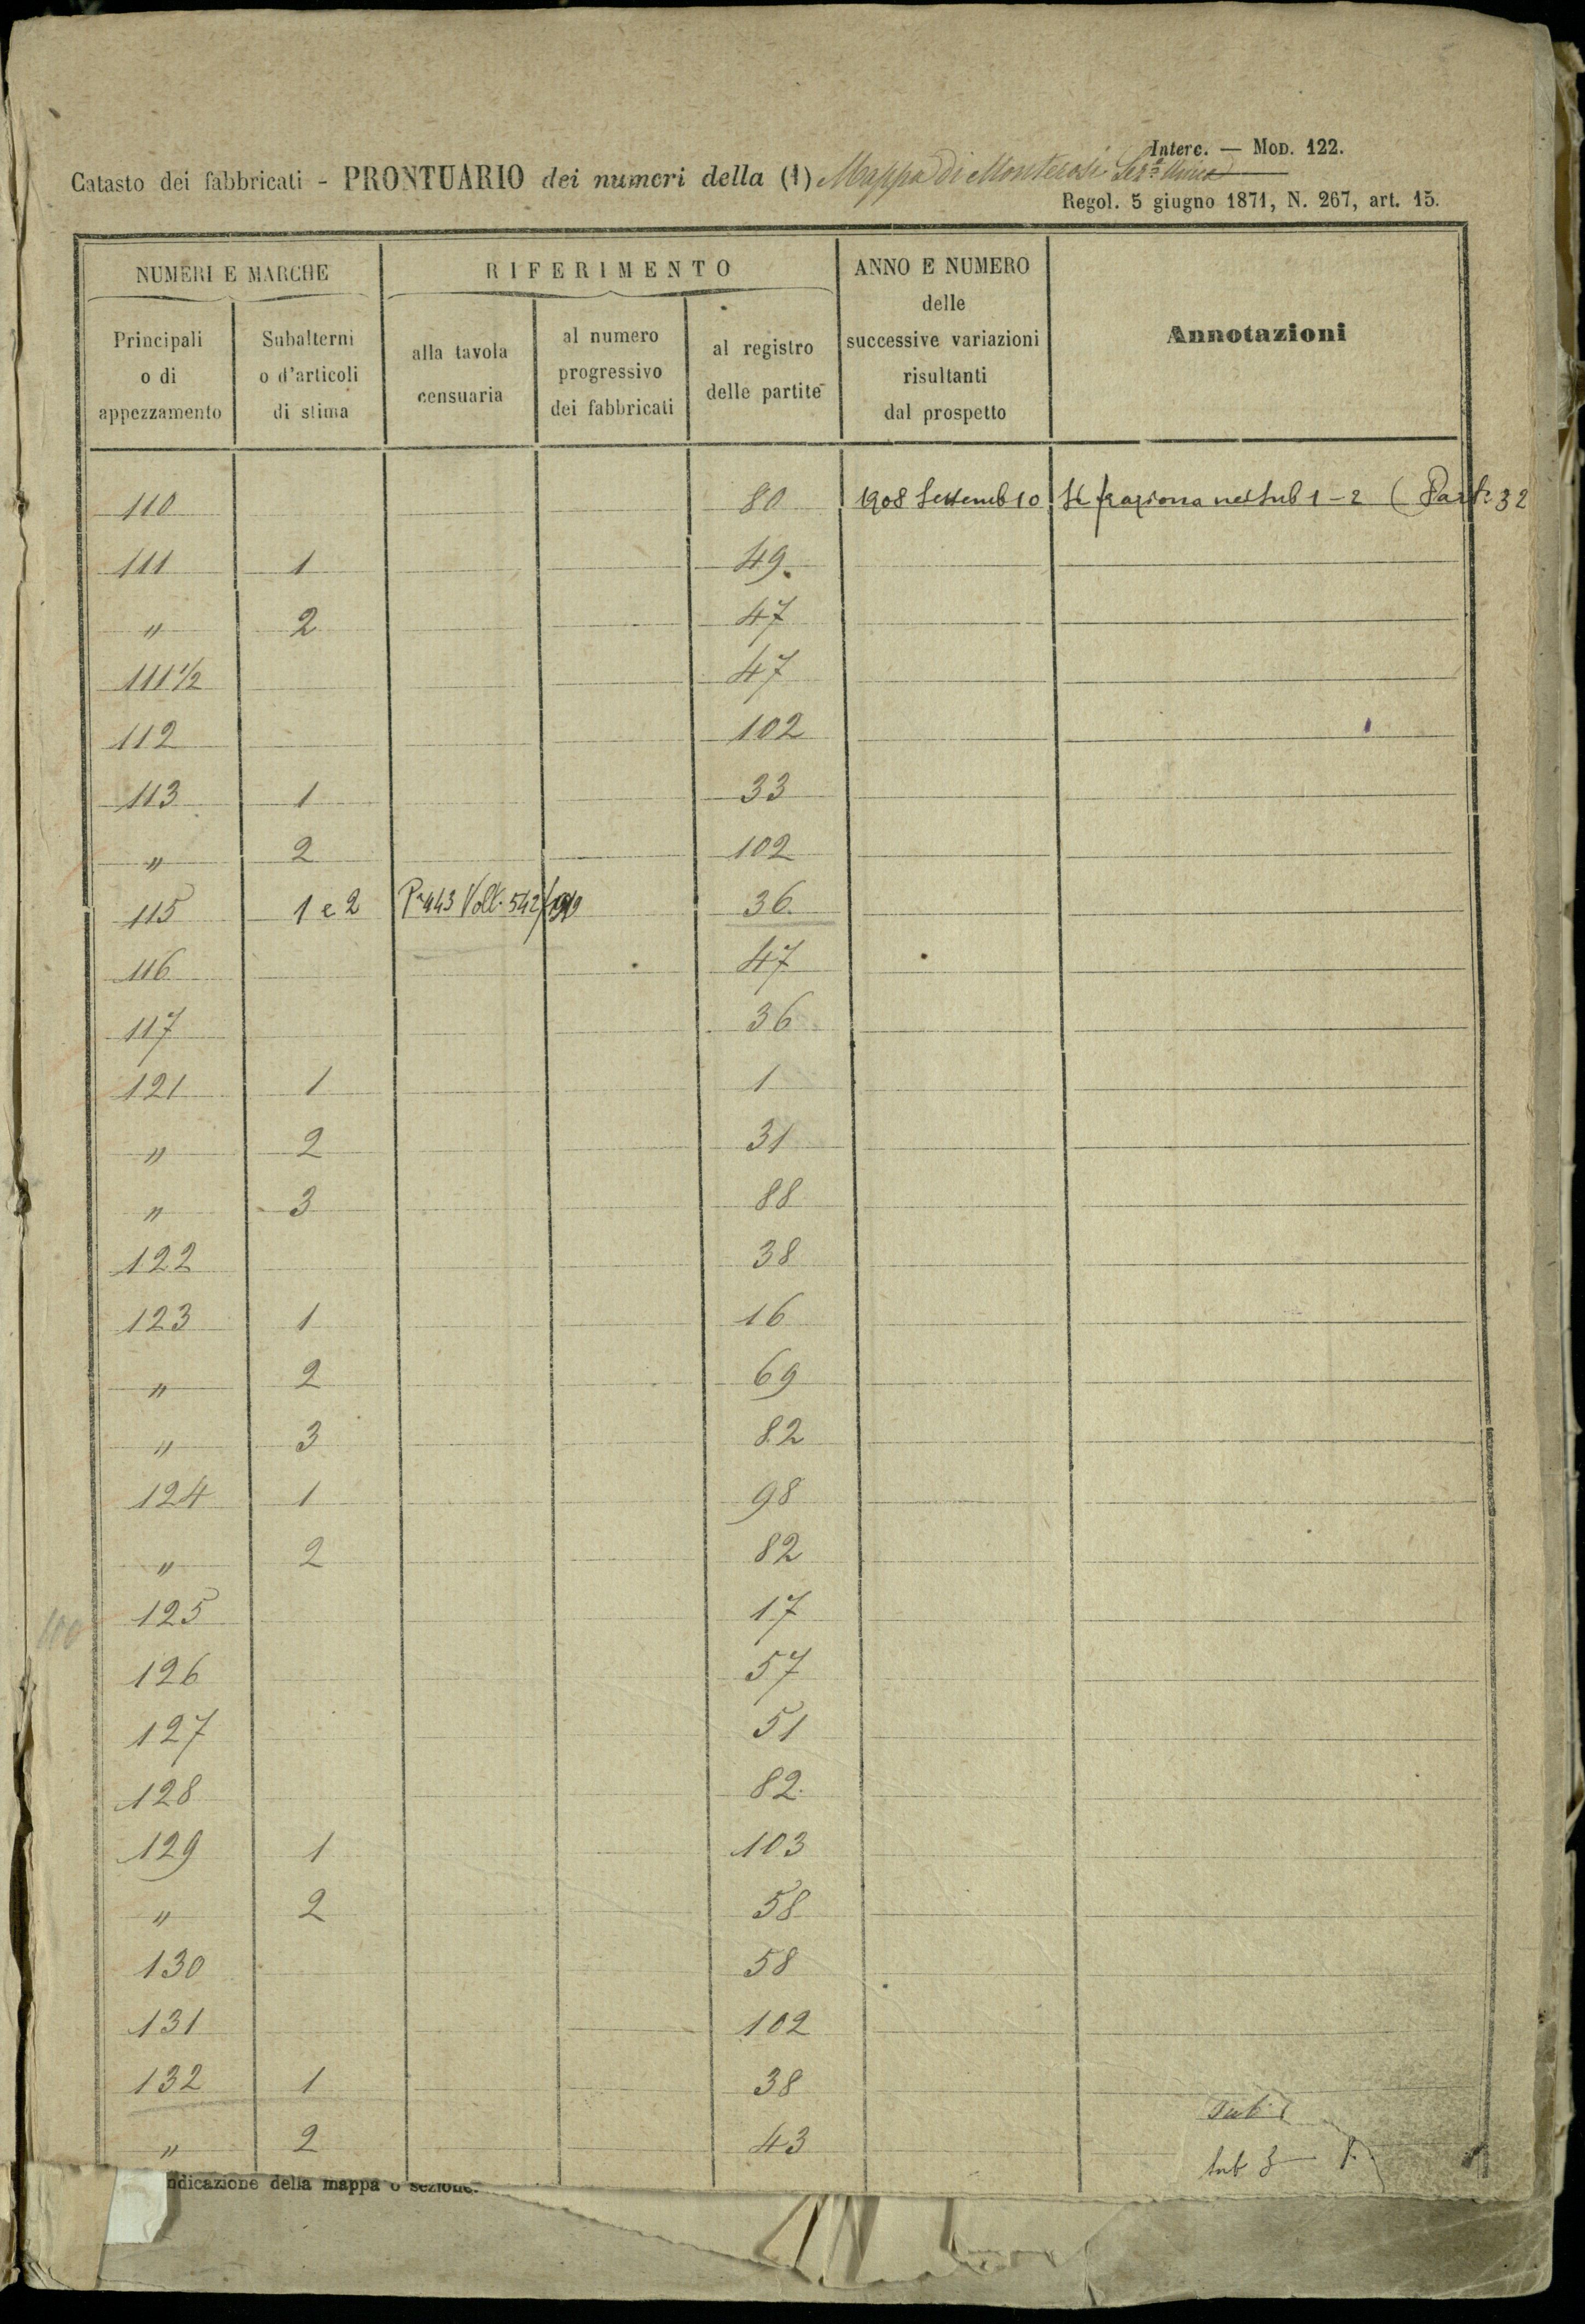 Interc. — Mod. 122.
Catasto dei fabbricati - PRONTUARIO dei numeri della (1) Mappa di Monterosi Sez.e Unica
Regol. 5 giugno 1871, N. 267, art. 15.
NUMERI E MARCHE
RIFERIMENTO
ANNO E NUMERO
delle
successive variazioni
risultanti
dal prospetto
Annotazioni
Principali
o di
appezzamento
Subalterni
o d'articoli
di stima
alla tavola
censuaria
al numero
progressivo
dei fabbricati
al registro
delle partite
110 80 1908 Settemb 10 Si fraziona nei Sub 1 - 2 ( Part. 32
111 1 49
" 2 47
111 1/2 47
112 102
113 1 33
" 2 102
115 1 e 2 443 Volt. 542 36
116 47
117 36
121 1 1
" 2 31
" 3 88
122 38
123 1 16
" 2 69
" 3 82
124 1 98
" 2 82
125 17
126 57
127 51
128 82
129 1 103
" 2 58
130 58
131 102
132 1 38
Sub
" 2 43
Sub 3
ndicazione della mappa o sezione.